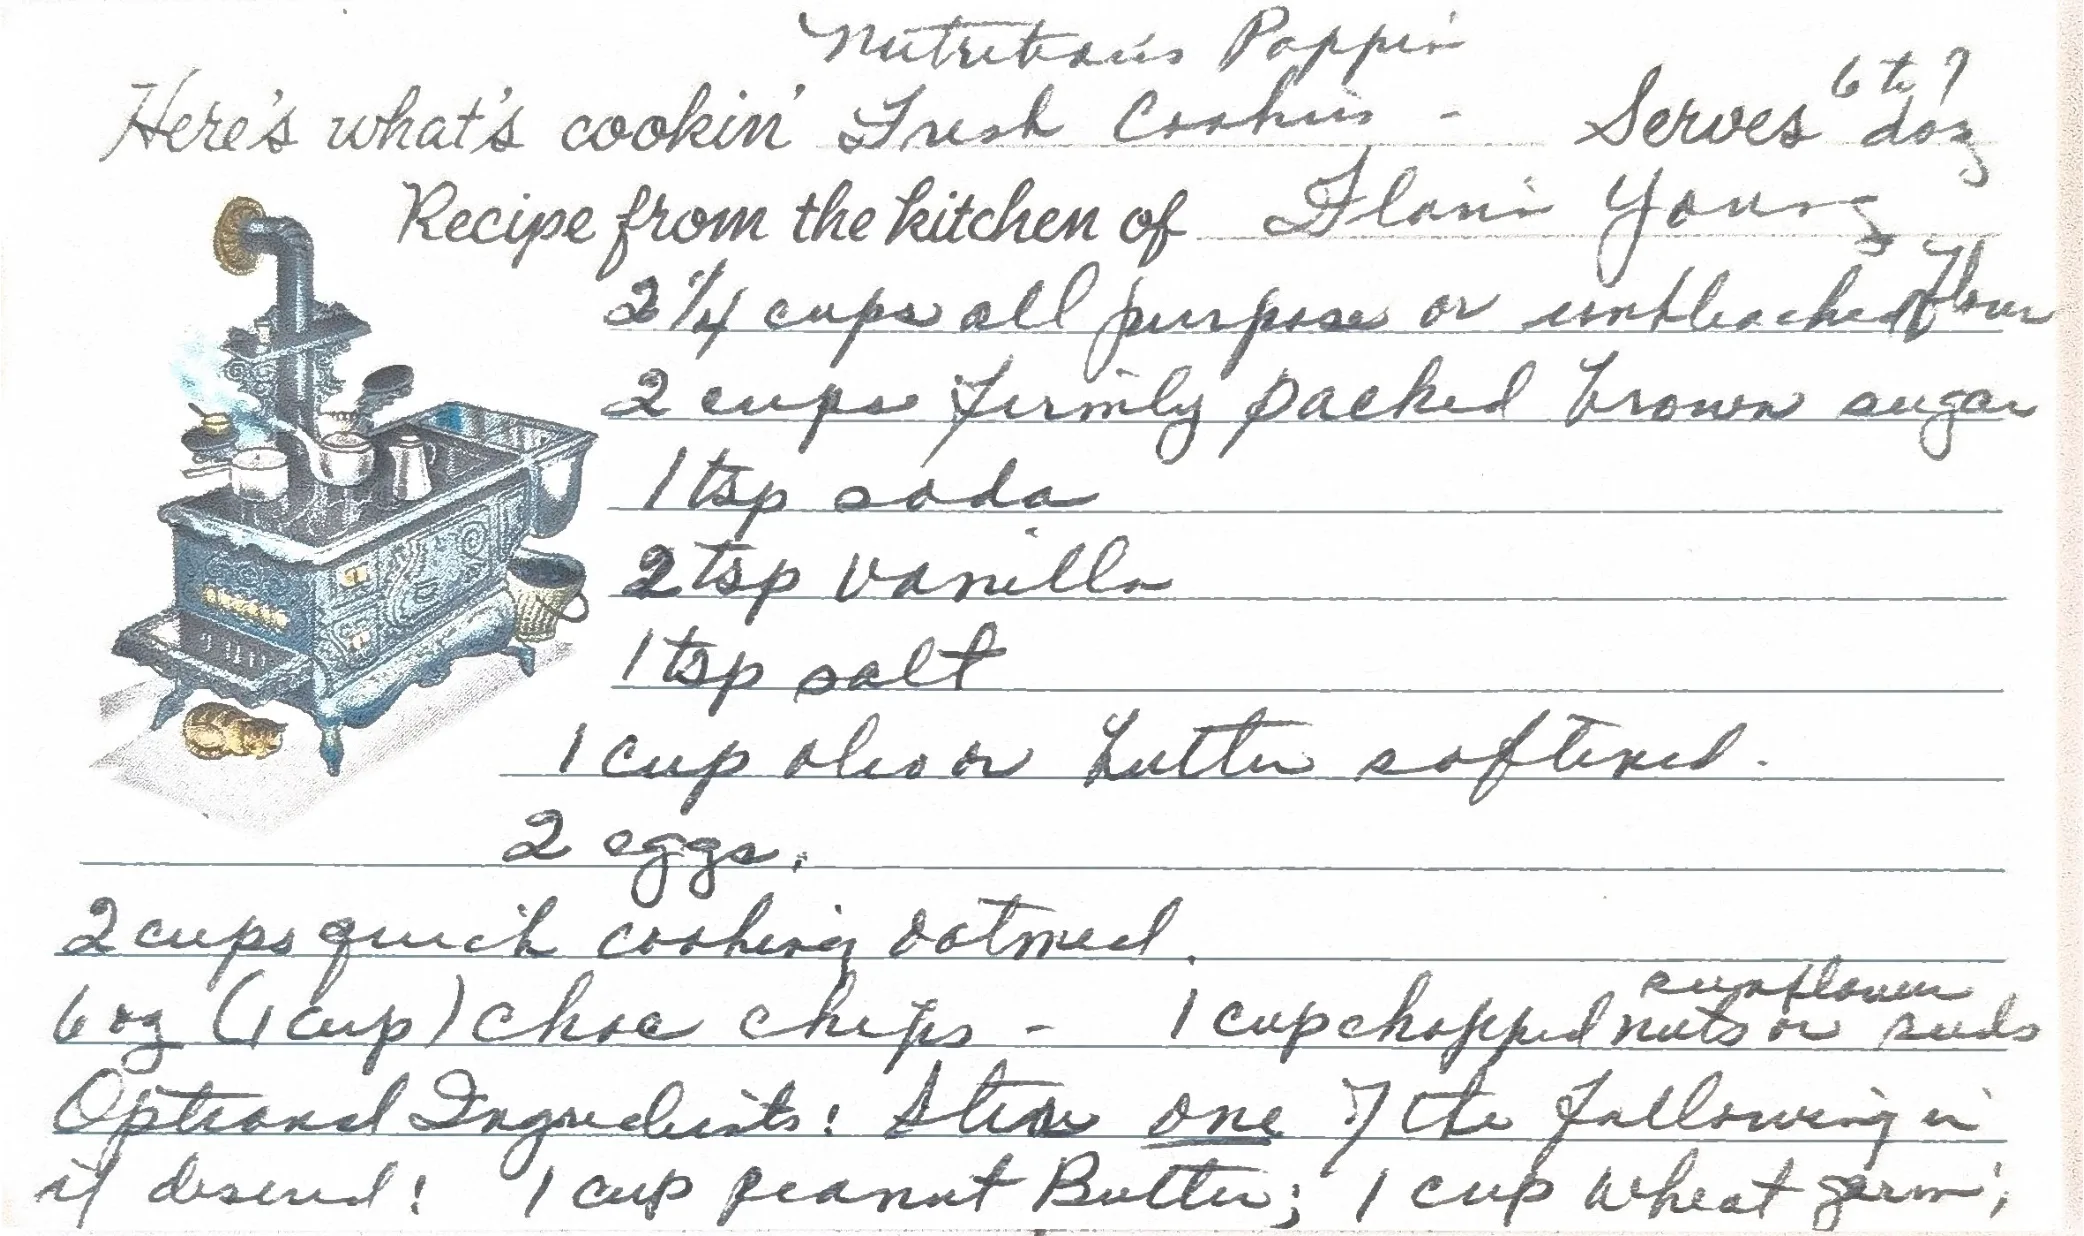 Nutritious Poppin
Here's what's cookin' Fresh Cookies - Serves 6 to 7 doz
Recipe from the kitchen of Young
2 1/4 cups all purpose or unbleached flour
2 cups firmly packed brown sugar
1 tsp soda
2 tsp vanilla
1 tsp salt
1 cup oleo or butter softened.
2 eggs.
2 cups quick cooking oatmeal.
6 oz (1 cup) choc chips - 1 cup chopped nuts or sunflower seeds
Optional Ingredients: Stir one of the following in
if desired: 1 cup peanut Butter; 1 cup wheat germ;